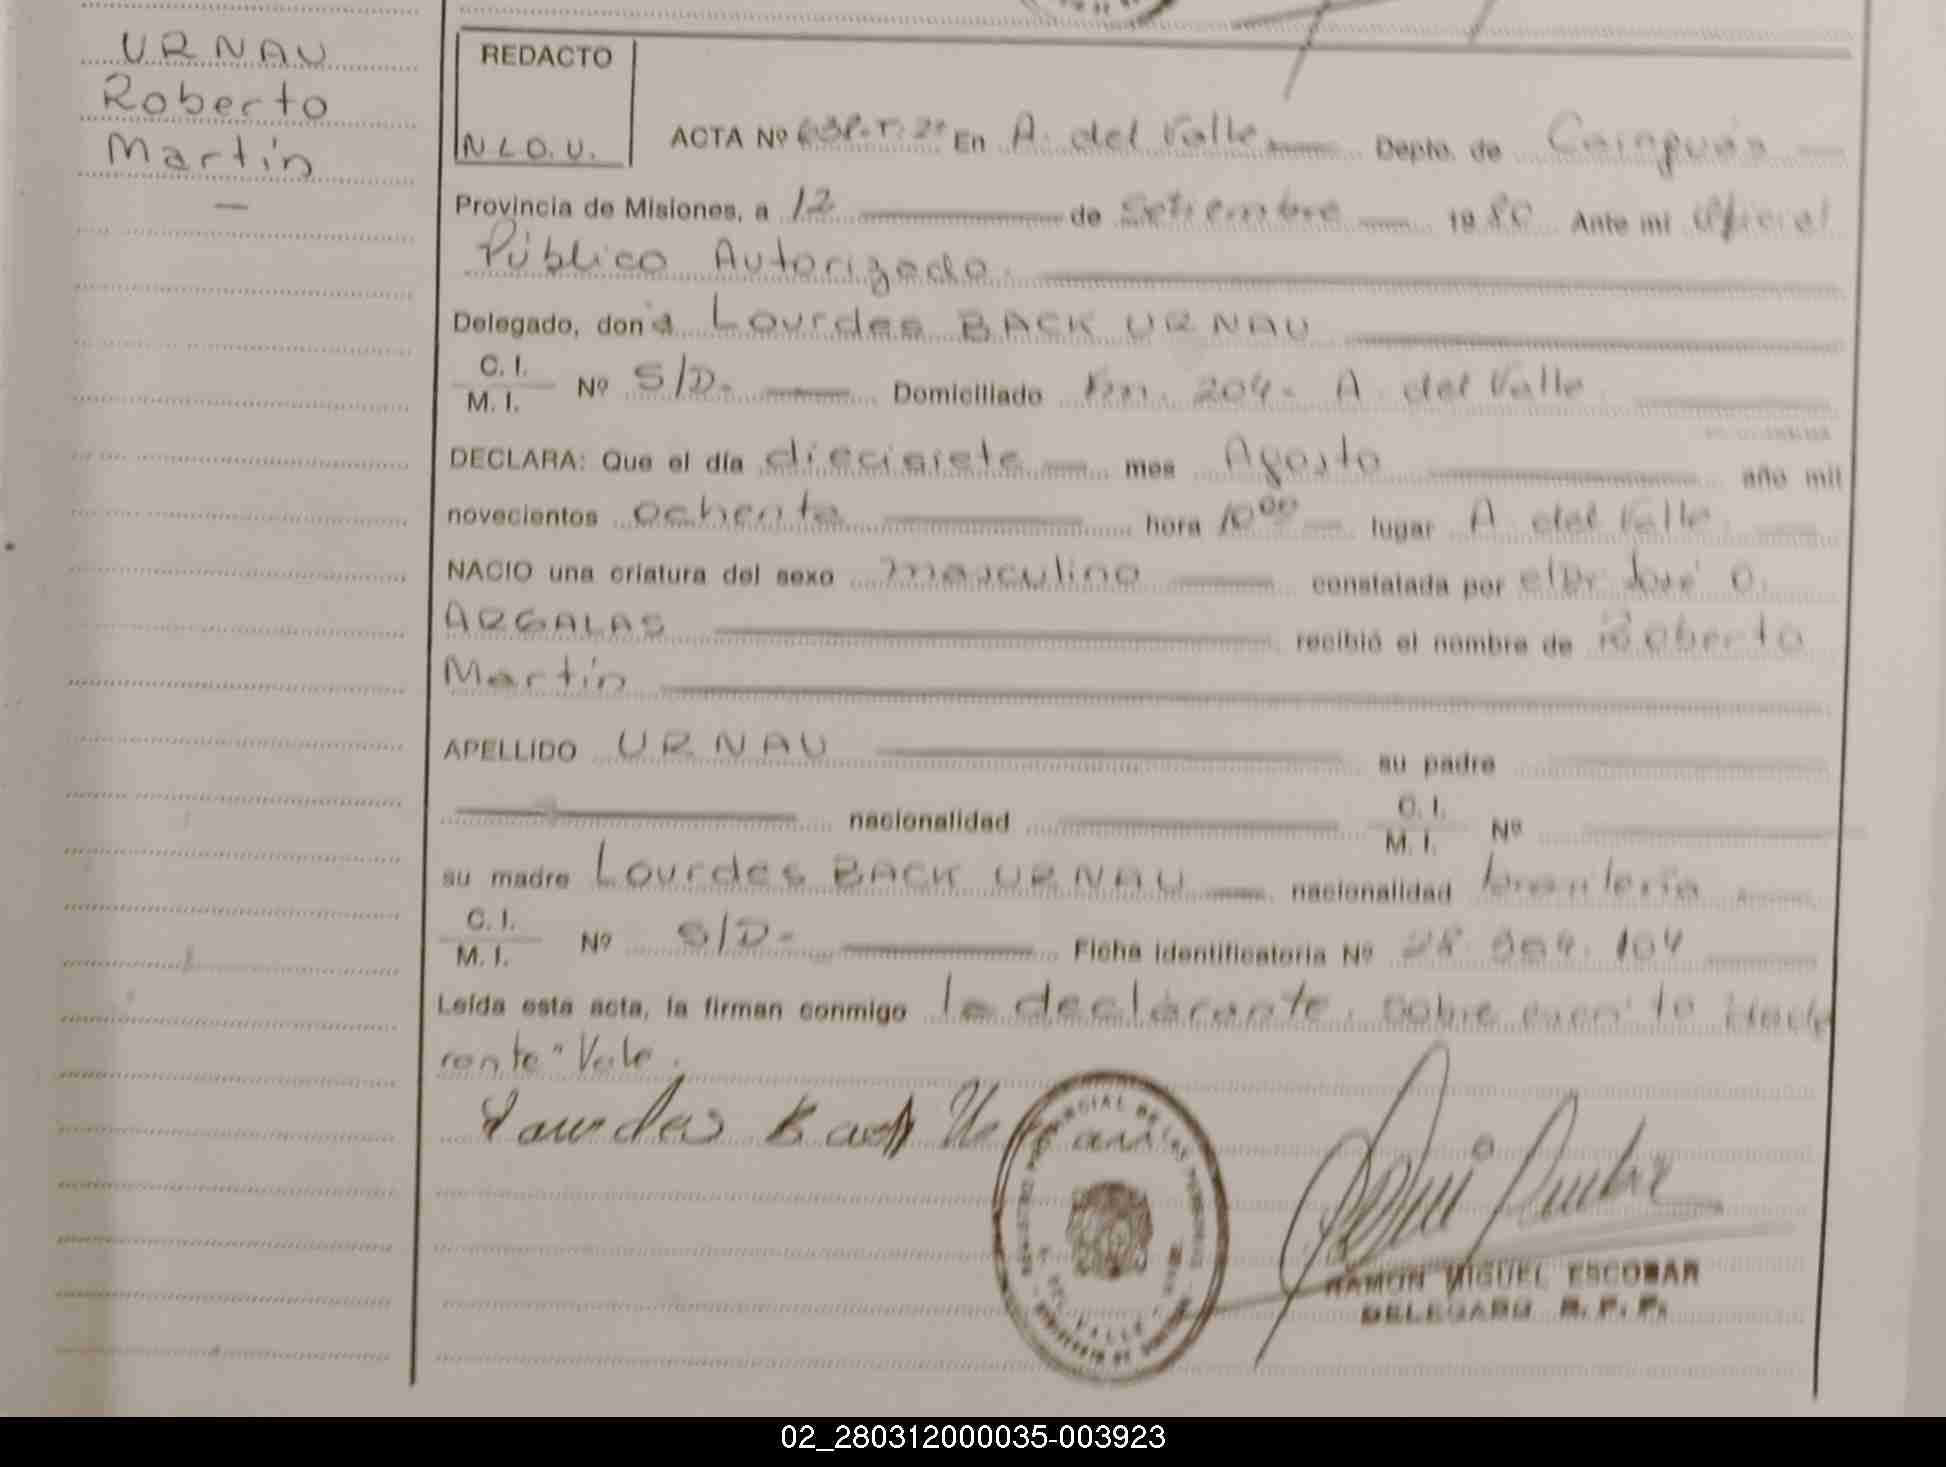 URNAU
Roberto
Martín
REDACTO
N.L.O.U.
ACTA Nº En A. del Valle Depto. de Cainguás
Provincia de Misiones, a 12 de Setiembre 1980 Ante mí Oficial
Público Autorizado.
Delegado, don a Lourdes BACK URNAU
C. I.
M. I. Nº S/D. Domiciliado Km. 204. A. del Valle
DECLARA: Que el día diecisiete mes Agosto año mil
novecientos ochenta hora 10 00 lugar A del Valle
NACIO una criatura del sexo masculino constatada por el Dr José O.
ARGALAS recibió el nombre de Roberto
Martín
APELLIDO URNAU su padre
nacionalidad C. I.
M. I. Nº
su madre Lourdes BACK URNAU nacionalidad
C. I.
M. I. Nº S/D. Ficha identificatoria Nº 104
Leída esta acta, la firman conmigo la declarante. Sobre
rante" Vale.
Lourdes Back
DEL VALLE
RAMON MIGUEL ESCOBAR
DELEGADO R. P. P.
02_280312000035-003923